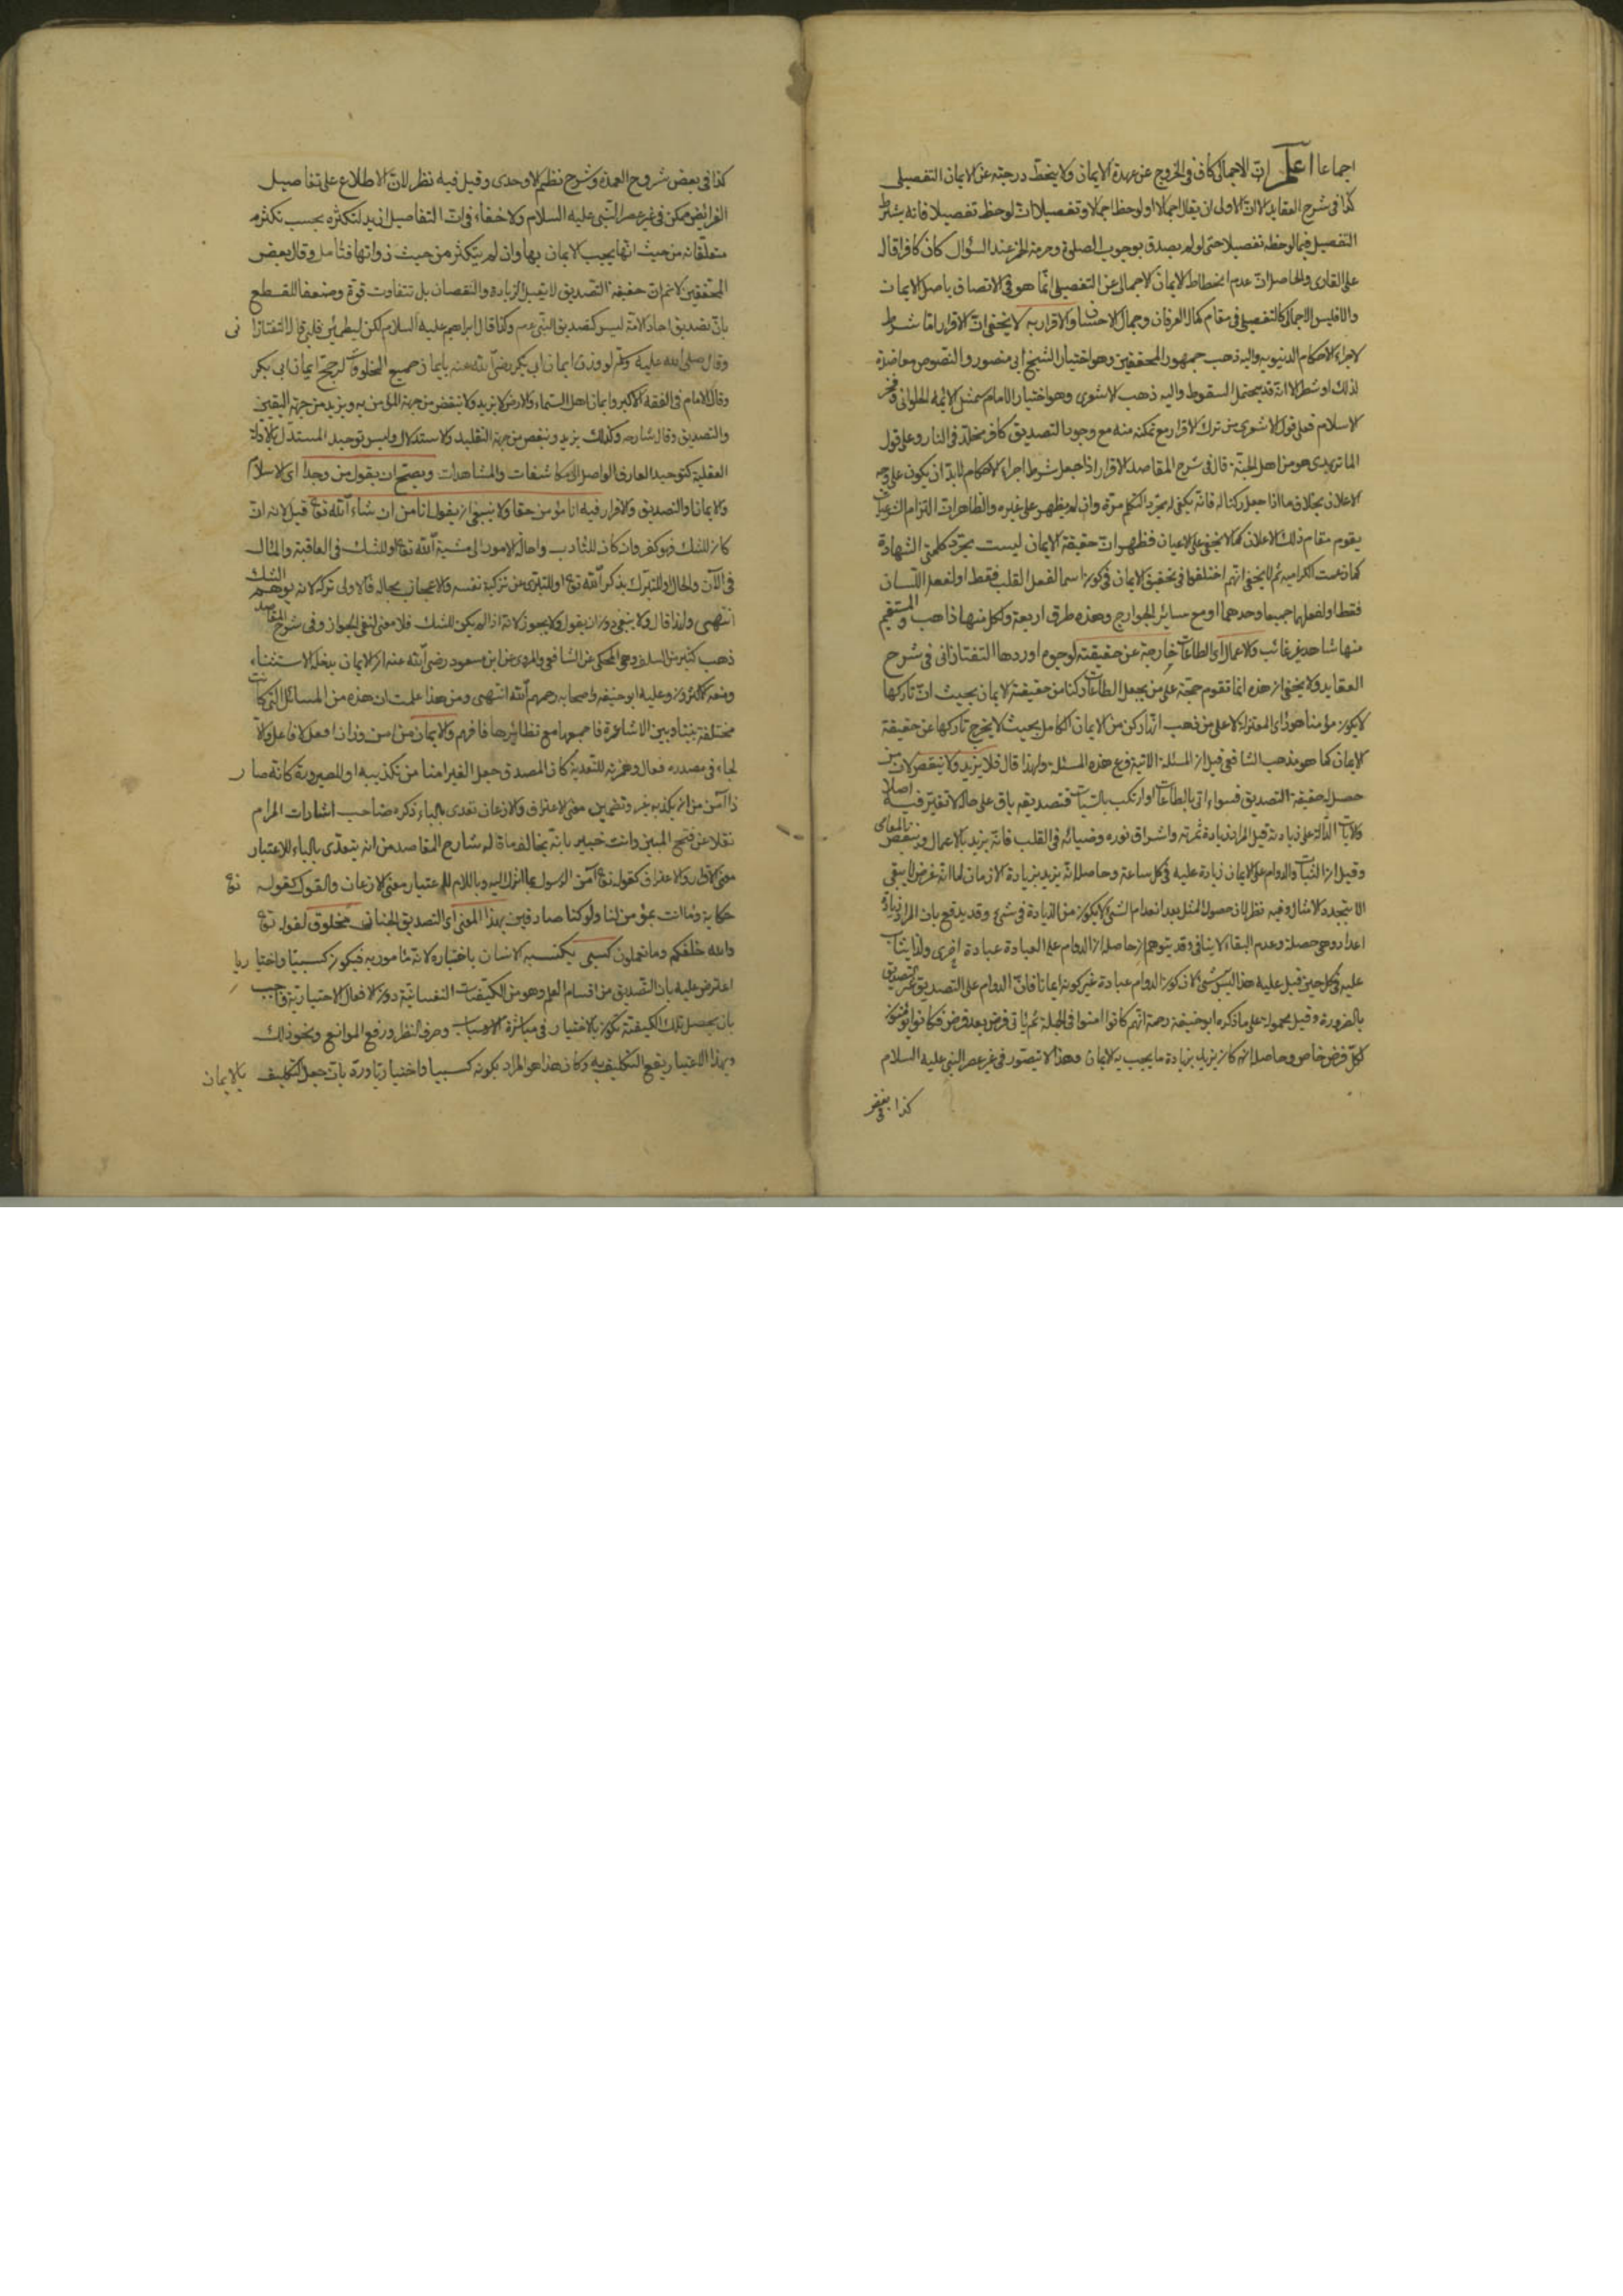 اجماعا اعلم ان الاجمالى كاف فى الخروج عن عهدة الايمان ولا ينحط درجته عن الايمان التفصيلى
كذا فى شرح العقايد الا ان الاولى ان يقال اجمالا ان لوحظ اجمالا وتفصيلا ان لوحظ تفصيلا فانه يشترط
التفصيل فيما لوحظ تفصيلا حتى لو لم يصدق بوجوب الصلوة وحرمة الخمر عند السؤال كان كافرا قاله
على القارى والحاصل ان عدم انحطاط الايمان الاجمالى عن التفصيلى انما هو فى الاتصاف باصل الايمان
والا فليس الاجمال كالتفصيل فى مقام كمال العرفان وجمال الاحسان والاقرار به لا يخفى ان الاقرار اما شرط
لاجراء الاحكام الدنيوية واليه ذهب جمهور المحققين وهو اختيار الشيخ ابى منصور والنصوص معاضدة
لذلك او شطر الا انه قد يحتمل السقوط واليه ذهب الاشعرى وهو اختيار الامام شمس الائمه الحلوانى وفخر
الاسلام فعلى قول الاشعرى من ترك الاقرار مع تمكنه منه مع وجود التصديق كافر مخلد فى النار وعلى قول
الماتريدى هو من اهل الجنة قال فى شرح المقاصد الاقرار اذا جعل شرط اجراء الاحكام لا بد ان يكون على وجه
الاعلان بخلاف ما اذا جعل ركنا له فانه يكفى له مجرد التكلم مرة وان لم يظهر على غيره والظاهر ان التزام الشرعيات
يقوم مقام ذلك الاعلان كما لا يخفى على الاعيان فظهر ان حقيقة الايمان ليست مجرد كلمتى الشهادة
كما زعمت الكرامية ثم لا يخفى انهم اختلفوا فى تحقيق الايمان فى كونه اسما لفعل القلب فقط او لفعل اللسان
فقط او لفعلهما جميعا وحدهما او مع سائر الجوارح وهذه طرق اربعة ولكل منها ذاهب والمستقيم
منها شاهد غير غائب والاعمال اى الطاعات خارجة عن حقيقته لوجوه اوردها التفتازانى فى شرح
العقايد ولا يخفى ان هذه انما تقوم حجة على من يجعل الطاعات ركنا من حقيقة الايمان بحيث ان تاركها
لا يكون مؤمنا هو رأى المعتزلة لا على من ذهب انها ركن من الايمان الكامل بحيث لا يخرج تاركها عن حقيقة
الايمان كما هو مذهب الشافعى قيل ان المسئلة الاتية فرع هذه المسئلة ولهذا قال فلا يزيد ولا ينقص لان من
حصل له حقيقة التصديق فسواء اتى بالطاعات او ارتكب بالسيئات فتصديقه باق على حاله لا تغير فيه اصلا
والايات الدالة على زيادته قيل المراد زيادة ثمرته واشراق نوره وضيائه فى القلب فانه يزيد بالاعمال وينقص بالمعاصى
وقيل ان الثبات والدوام على الايمان زيادة عليه فى كل ساعة وحاصله انه يزيد بزيادة الازمان لما انه عرض لا يبقى
الا بتجدد الامثال وفيه نظر لان حصول المثل بعد انعدام الشئ لا يكون من الزيادة فى شئ وقد يدفع بان المراد زيادة
اعداد وهى حصلة وعدم البقاء لا ينافى وقد يتوهم ان حاصله ان الدوام على العبادة عبادة اخرى ولذا يثاب
عليه فى كل حين قيل عليه هذا ليس بشئ لان كون الدوام عبادة غير كونه ايمانا فان الدوام على التصديق غير التصديق
بالضرورة وقيل محموله على ما ذكره ابو حنيفة رحمة انهم كانوا امنوا فى الجملة ثم يأتى فرض بعد فرض فكانوا يؤمنون
لكل فرض خاص وحاصله انه كان يزيد بزيادة ما يجب به الايمان وهذا لا يتصور فى غير عصر النبى عليه السلام
كذا فى بعض
كذا فى بعض شروح العمدة وشرح نظم الاوحدى وقيل فيه نظر لان الاطلاع على تفاصيل
الفرائض ممكن فى غير عصر النبى عليه السلام ولا خفاء فى ان التفاصيل ازيد لتكثره بحسب تكثر
متعلقاته من حيث انها يجب الايمان بها وان لم يتكثر من حيث ذواتها فتأمل وقال بعض
المحققين لا نم ان حقيقة التصديق لا يقبل الزيادة والنقصان بل تتفاوت قوة وضعفا للقطع
بان تصديق احاد الامة ليس كتصديق النبى عم ولذا قال ابراهيم عليه السلام لكن ليطمئن قلبى قال التفتازانى
وقال صلى الله عليه وسلم لو وزن ايمان ابى بكر رضى الله عنه بايمان جميع المخلوقات لرجح ايمان ابى بكر
وقال الامام فى الفقه الاكبر وايمان اهل السماء والارض لا يزيد ولا ينقص من جهة المؤمن به ويزيد من جهة اليقين
والتصديق وقال شارحه وكذلك يزيد وينقص من جهة التقليد والاستدلال وليس توحيد المستدل بالادلة
العقلية كتوحيد العارف الواصل الى المكاشفات والمشاهدات ويصح ان يقول من وجد اى الاسلام
والايمان والتصديق والاقرار فيه انا مؤمن حقا ولا ينبغى ان يقول انا مؤمن ان شاء الله تع قيل لانه ان
كان للشك فهو كفر وان كان للتأدب واحالة الامور الى مشية الله تع او للشك فى العاقبة والمآل لا
فى الآن والحال او للتبرك بذكر الله تع او للتبرى عن تزكية نفسه والاعجاب بحاله فالاولى تركه لانه يوهم الشك
انتهى ولذا قال ولا ينبغى دون ان يقول ولا يجوز لانه اذا لم يكن للشك فلا معنى لنفى الجواز وفى شرح المقاصد
ذهب كثير من السلف وهو المحكى عن الشافعى والمروى عن ابن مسعود رضى الله عنه ان الايمان يدخله الاستثناء
ومنعه الاكثرون وعليه ابو حنيفه واصحابه رحمهم الله انتهى ومن هذا علمت ان هذه من المسائل التى كانت
مختلفة بيننا وبين الاشاعرة فاجمعها مع نظائرها فافهم والايمان من امن وزان افعل لا فاعل والا
لجاء فى مصدره فعال وهمزته للتعدية كان المصدق جعل الغير امنا من تكذيبه او للصيرورة كانه صار
ذا آمن من ان يكذبه غيره وتضمين معنى الاعتراف والاذعان تعدى بالباء ذكره صاحب اشارات المرام
نقلا عن فتح المبين وانت خبير بانه يخالف ما قاله شارح المقاصد من انه يتعدى بالباء للاعتبار
معنى الاقرار والاعتراف كقوله تع آمن الرسول بما انزل اليه وباللام للاعتبار معنى الاذعان والقبول كقوله تع
حكاية وما انت بمؤمن لنا ولو كنا صادقين بهذا المعنى اى التصديق الجنانى مخلوق لقوله تع
والله خلقكم وما تعملون كسبى يكتسبه الانسان باختياره لانه مأمور به فيكون كسبيا واختياريا
اعترض عليه بان التصديق من اقسام العلم وهو من الكيفيات النفسانية دون الافعال الاختيارية فاجيب
بان يحصل تلك الكيفية يكون بالاختيار فى مباشرة الاسباب وصرف النظر ورفع الموانع ونحو ذلك
وبهذا الاعتبار يقع التكليف به وكان هذا هو المراد بكونه كسبيا واختياريا ورد بان جعل التكليف بالايمان